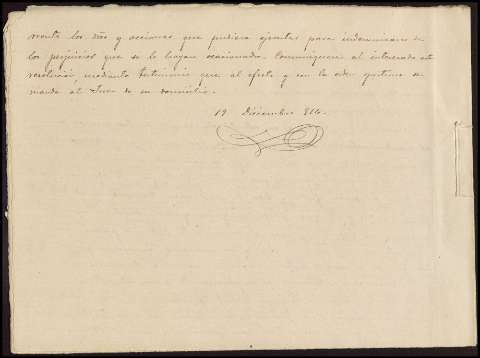 menta los dros y acciones que pudiera ejercitar para indemnizarse de
los perjuicios que se le hayan ocasionado. Comuníquese al interesado esta
resolución, mediante testimonio que al efecto y con la oportuna se
manda al Juez de su domicilio.
19 Diciembre 814.